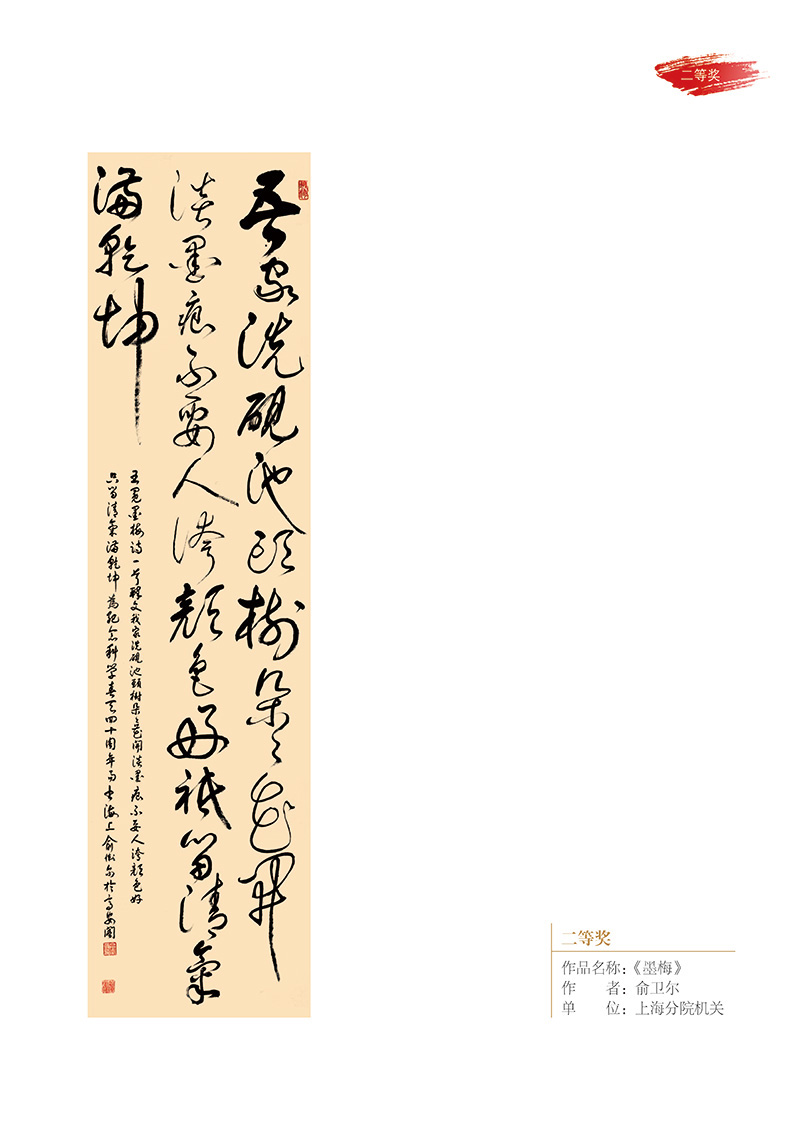 二等奖
吾家洗砚池头树朵々花开
淡墨痕不要人誇颜色好祗留清氣
满乾坤
王冕墨梅诗一首释文我家洗砚池頭樹朵々花開淡墨痕不要人誇颜色好
只留清氣满乾坤為纪念科学春天四十周年而書海上俞衛尔於高安阁
二等奖
作品名称：《墨梅》
作　　者：俞卫尔
单　　位：上海分院机关